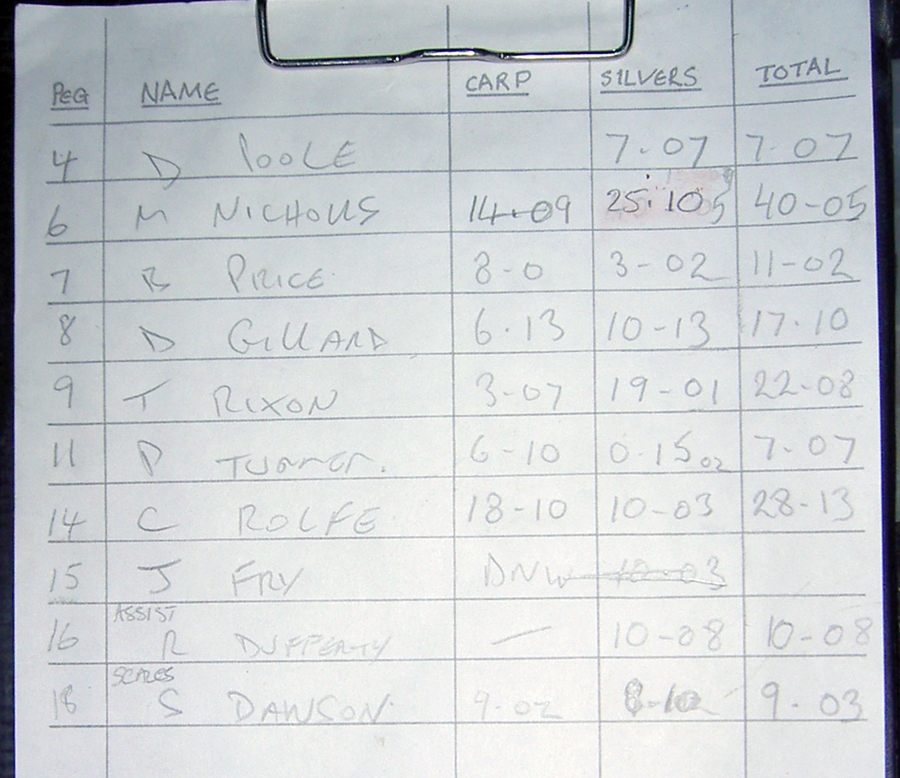 PEG NAME CARP SILVERS TOTAL
4 D POOLE 7-07 7-07
6 M NICHOLLS 14-09 25-10 40-05
7 R PRICE 8-0 3-02 11-02
8 D GILLARD 6-13 10-13 17-10
9 T RIXON 3-07 19-01 22-08
11 P TURNER. 6-10 0-15 02 7-07
14 C ROLFE 18-10 10-03 28-13
15 J FRY DNW 10-03
ASSIST
16 R DUFFERTY — 10-08 10-08
SCALES
18 S DAWSON 9-02 9-03